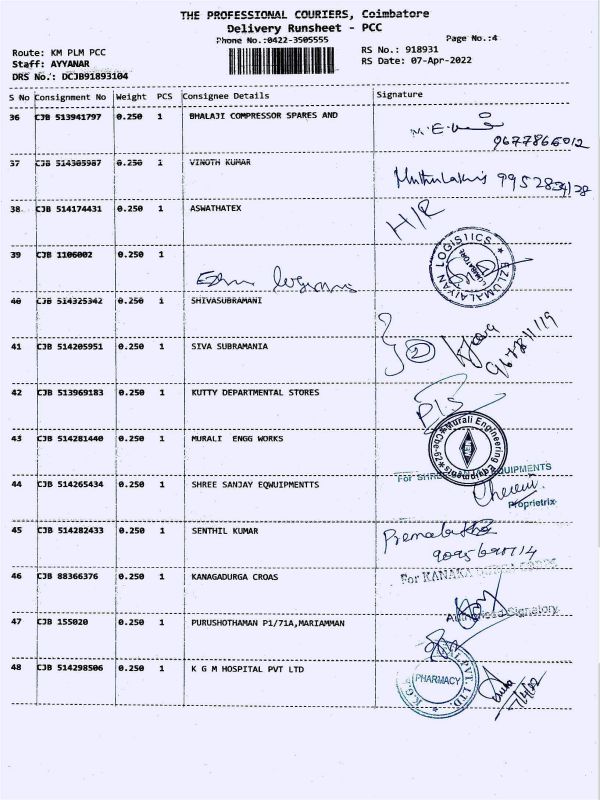 THE PROFESSIONAL COURIERS, Coimbatore
Delivery Runsheet - PCC
Phone No.:0422-3505555
Page No.:4
Route: KM PLM PCC
RS No.: 918931
Staff: AYYANAR
RS Date: 07-Apr-2022
DRS No.: DCJB91893104
S No Consignment No Weight PCS Consignee Details Signature
36 CJB 513941797 0.250 1 BHALAJI COMPRESSOR SPARES AND
9677866012
37 CJB 514305987 0.250 1 VINOTH KUMAR
38 CJB 514174431 0.250 1 ASWATHATEX
H/R
39 CJB 1106002 0.250 1
EZLUMALAIYAN LOGISTICS
COIMBATORE
40 CJB 514325342 0.250 1 SHIVASUBRAMANI
41 CJB 514205951 0.250 1 SIVA SUBRAMANIA
2
42 CJB 513969183 0.250 1 KUTTY DEPARTMENTAL STORES
P/S
43 CJB 514281440 0.250 1 MURALI ENGG WORKS
Murali Engineering Equipments Cbe-62
44 CJB 514265434 0.250 1 SHREE SANJAY EQWUIPMENTTS
For SHREE EQUIPMENTS
Proprietrix
45 CJB 514282433 0.250 1 SENTHIL KUMAR
46 CJB 88366376 0.250 1 KANAGADURGA CROAS
For KANAKA
Authorised Signatory
47 CJB 155020 0.250 1 PURUSHOTHAMAN P1/71A,MARIAMMAN
48 CJB 514298506 0.250 1 K G M HOSPITAL PVT LTD
PHARMACY
PVT. LTD.
7/4/22